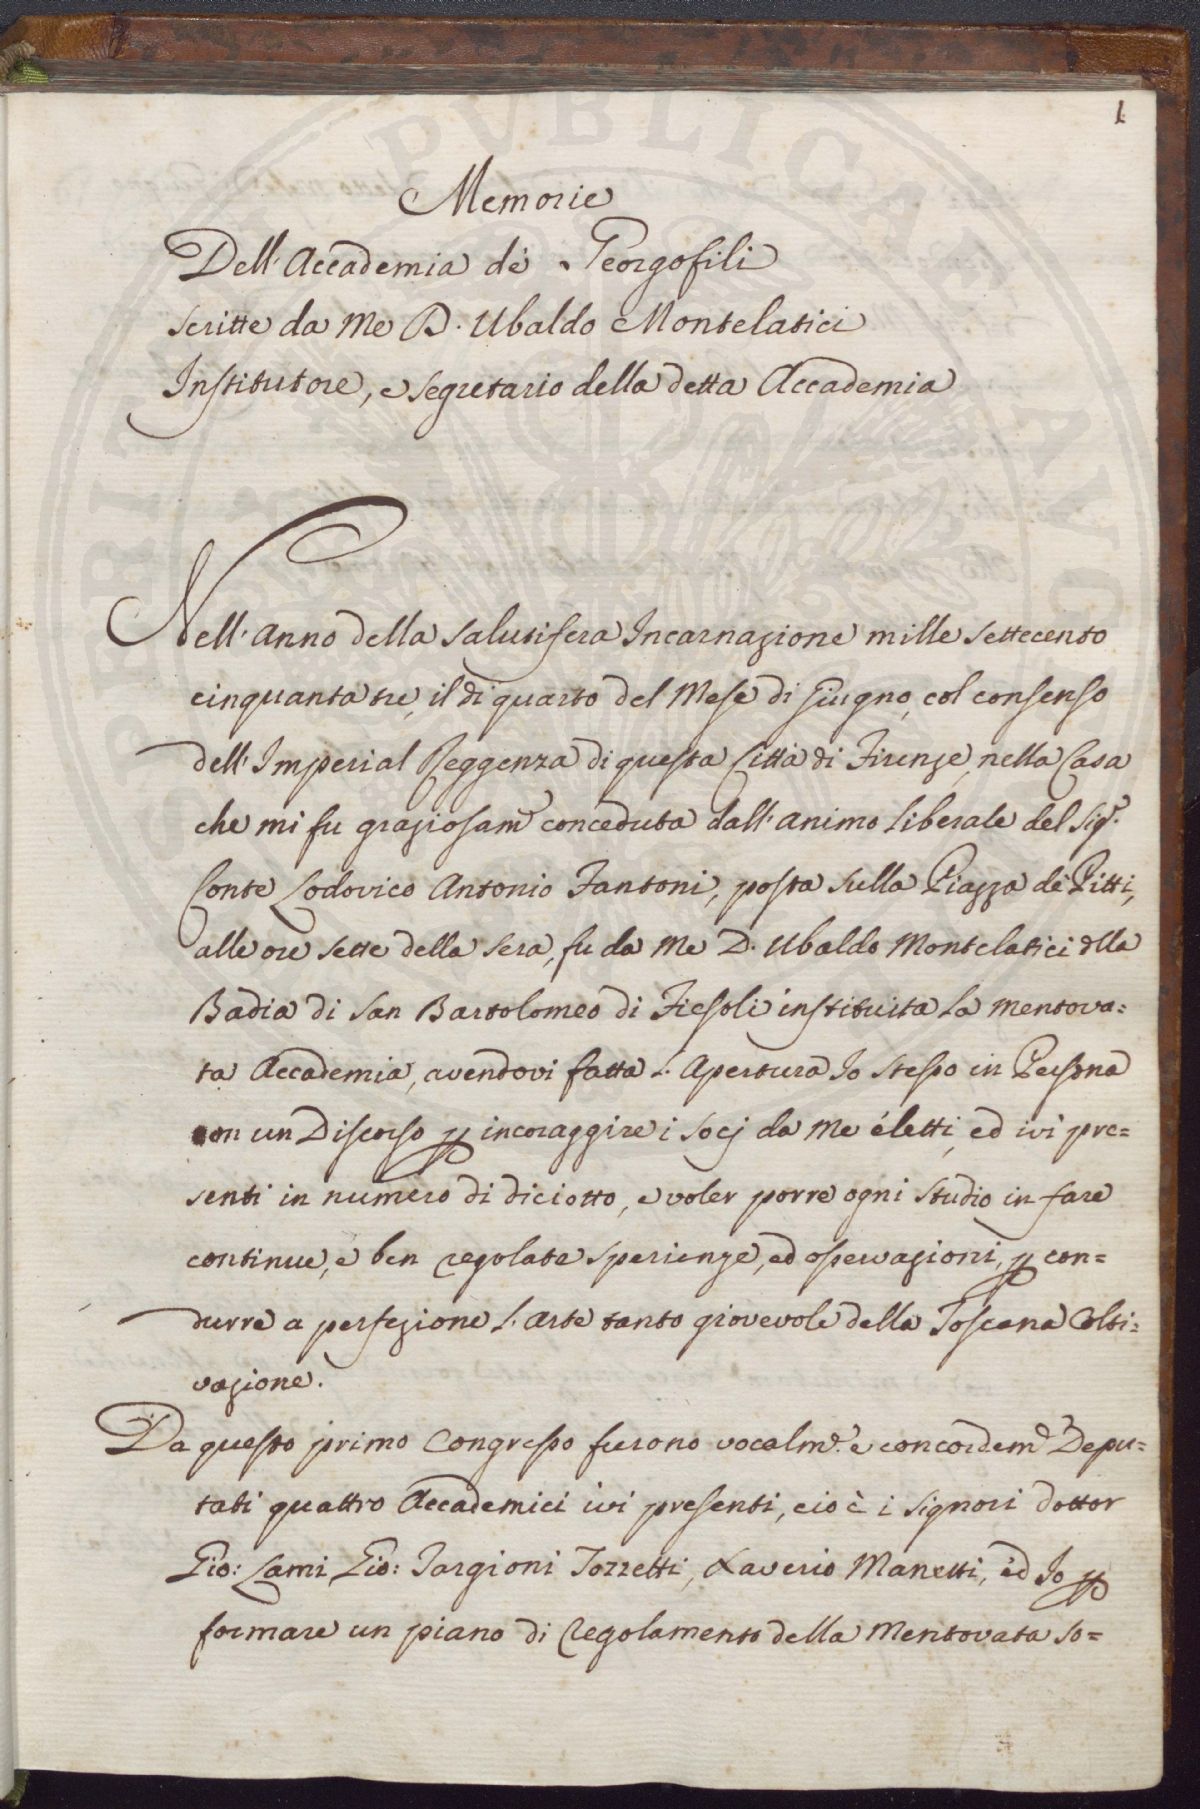 1
Memorie
Dell'Accademia de' Georgofili
scritte da Me D. Ubaldo Montelatici
Institutore, e segretario della detta Accademia
Nell'Anno della salutifera Incarnazione mille settecento
cinquanta tre, il dì quarto del Mese di Giugno, col consenso
dell'Imperial Reggenza di questa Città di Firenze, nella Casa
che mi fu graziosam.e conceduta dall'animo liberale del Sig.r
Conte Lodovico Antonio Fantoni, posta sulla Piazza de' Pitti,
alle ore sette della sera, fu da Me D. Ubaldo Montelatici dlla
Badia di San Bartolomeo di Fiesoli instituita la mentova=
ta Accademia, avendovi fatta l'Apertura Io stesso in Persona
con un Discorso p incoraggire i socj da me eletti, ed ivi pre=
senti in numero di diciotto, e voler porre ogni studio in fare
continue, e ben regolate sperienze, ed osservazioni, p con=
durre a perfezione l'Arte tanto giovevole della Toscana Colti=
vazione.
Da questo primo Congresso furono vocalm.e e concordem.e Depu=
tati quattro Accademici ivi presenti, cioè i Signori dottor
Gio: Lami, Gio: Targioni Tozzetti, Xaverio Manetti, ed Io p
formare un piano di Regolamento della Mentovata so=